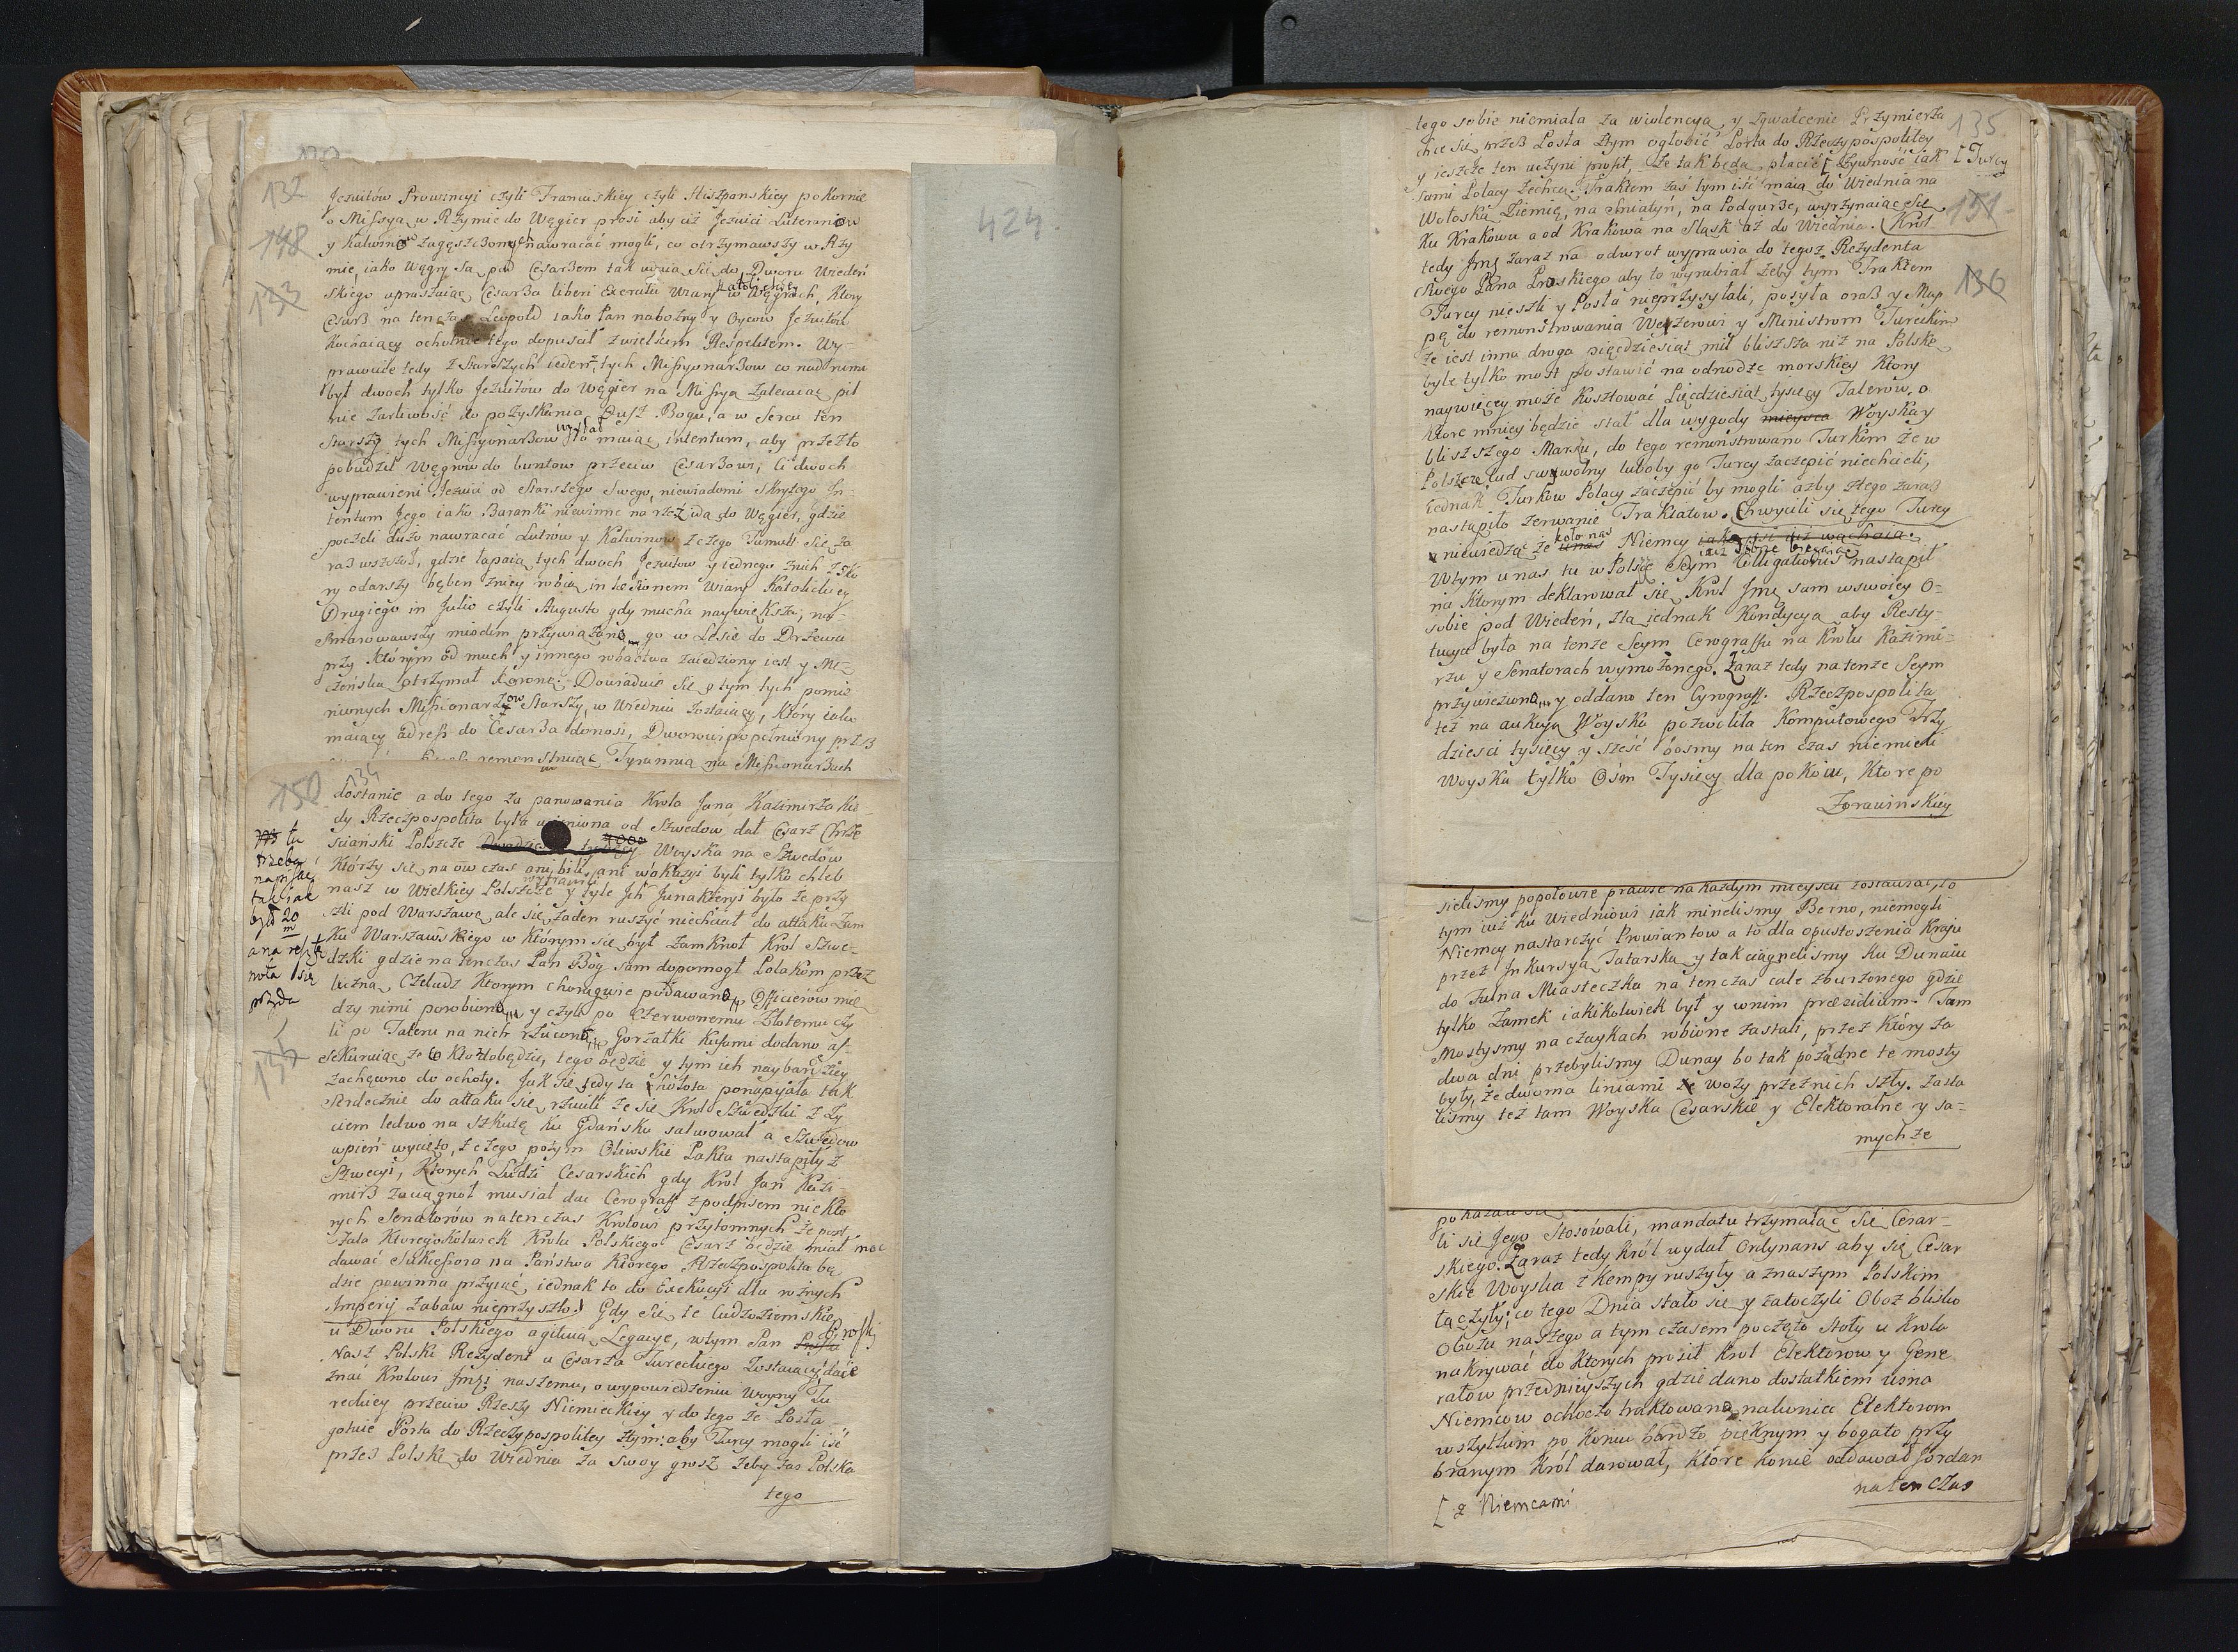 132
148
133
Jezuitów Prowincyi czyli Francuskiey czyli Hiszpanskiey pokornie
o Missyą w Rzymie do Węgier prosi aby ciż Jezuici Luteranów
y Kalwinów zagęszczonych nawracać mogli, co otrzymawszy w Rzy
mie, iako Węgry są pod Cesarzem tak udaią się do Dworu Wiedeń
skiego upraszaiąc Cesarza liberi Exercitii Wiary Katolickiey w Węgrach, Ktory
Cesarz na tenczas Leopold iako Pan nabożny y Oyców Jezuitów
Kochaiący ochotnie tego dopuścił z wielkim Respektem. Wy-
prawuie tedy z Starszych ieden z tych Missyonarzow co nad nimi
był dwoch tylko Jezuitów do Węgier na Missyą zalecaiąc pil
nie żarliwość do pozyskania Dusz Bogu, a w Sercu ten
Starszy tych Missyonarzow wysłał to maiąc intentum, aby przez to
pobudził Węgrow do buntow przeciw Cesarzowi, Ci dwoch
wyprawieni Jezuici od Starszego Swego, niewiadomi skrytego In-
tentum Jego iako Baranki niewinne na rzeź idą do Węgier, gdzie
poczeli dużo nawracać Lutrów y Kalwinow z czego Tumult się za
raz wszczoł, gdzie łapaią tych dwoch Jezuitow y iednego z nich z sko
ry odarszy bęben z niey robią in laesionem Wiary Katolickiey
Drugiego in Julio czyli Augusto gdy mucha naywiększa, na-
smarowawszy miodem przywiązano go w Lesie do Drzewa
przy którym od much y innego robactwa ziedziony iest y Mę-
czeńską otrzymał Koronę. Dowiaduie się o tym tych pomie
nionych Missionarzow Starszy, w Wiedniu zostaiący, Który łatw
maiący adress do Cesarza donosi, Dworowi popełniony przez
remonstruiąc Tyrannią na Missionarzach
134
150
dostanie a do tego za panowania Krola Jana Kazimierza kie-
dy Rzeczpospolita była uciśniona od Szwedow, dał Cesarz Chrze
sciański Polszcze 7000 Woyska na Szwedów
Którzy się na ów czas oni bili, ani w okazyi byli tylko chleb
nasz w Wielkiey Polszcze wytrawili y tyle Ich Junakteryi było że przy
szli pod Warszawę, ale się żaden ruszyć niechciał do attaku Zam
ku Warszawskiego w Którym się był zamknoł Krol Szwe-
dzki gdzie na tenczas Pan Bóg sam dopomogł Polakom przez
luźną Czeladz Ktorym chorągwie podawano, Officierów mię
dzy nimi porobiono, y czyli po Czerwonemu Złotemu czy
li po Taleru na nich rzucono, Gorzałki Kufami dodano as
sekuruiąc że co Ktozdobędzie, tego będzie y tym ich naybardziey
zachęcono do ochoty. Jak się tedy ta hołota ponapyała tak
serdecznie do attaku się rzucili że się Krol Szwedzki z Ży
ciem ledwo na szkutę ku Gdańsku salwował a Szwedow
wpień wycięto, z czego potym Oliwskie Pakta nastąpiły z
Szwecyi, Ktorych Ludzi Cesarskich gdy Krol Jan Kazi-
mirz zaciągnoł musiał dac Cerograff z podpisem niekto
rych Senatorów natenczas Krolowi przytomnych że post
fata Ktoregokolwiek Krola Polskiego Cesarz będzie miał moc
dawać Sukcessora na Państwo Którego Rzeczpospolita bę
dzie powinna przyiąć, iednak to do Exekucyi dla rożnych
Imperij zabaw nieprzyszło. Gdy się te Cudzoziemskie
u Dworu Polskiego agituią Legacye, wtym Pan Proski
Nasz Polski Rezydent u Cesarza Tureckiego zostaiący, daie
znać Krolowi Jmci naszemu, o wypowiedzeniu woyny Tu
reckiey przeciw Rzeszy Niemieckiey y do tego że Posła
gotuie Porta do Rzeczypospolitey z tym: aby Turcy mogli iść
przez Polskę do Wiednia za swoy grosz żeby zas Polska
tego
tu
trzeba
napisać
tak iak
był 20
m
a na resztę
nota się
przyda
135
424.
tego sobie niemiała za wiolencyą, y zgwałcenie Przymierza
chce się przez Posła z tym ogłosić Porta do Rzeczypospolitey
y ieszcze ten uczyni profit, że tak będą płacić [ żywność iak [ Turcy
sami Polacy zechcą. Traktem zaś tym iść maią do Wiednia na
Wołoską Ziemię, na Sniatyń, na Podgurze, wyrzynaiąc się
ku Krakowu a od Krakowa na Sląsk aż do Wiednia. (Krol
tedy Jmć zaraz na odwrot wyprawia do tegoż Rezydenta
swego Pana Proskiego aby to wyrabiał żeby tym Traktem
Turcy nieszli y Posła nieprzysyłali, posyła oraz y Map
pę do remonstrowania Wezerowi y Ministrom Tureckim
że iest inna droga pięcdziesiąt mil bliszsza niż na Polskę
byle tylko most postawić na odnodze morskiey Ktory
naywięcey może kosztować Pięcdziesiąt tysięcy Talerów, o
Ktore mniey będzie stał dla wygody miejsca Woyska y
bliszszego Marszu, do tego remonstrowano Turkom że w
Polszcze lud swywolny luboby go Turcy zaczepić niechcieli,
Jednak Turkow Polacy zaczepić by mogli azby z tego zaraz
nastąpiło zerwanie Traktatow. Chwycili się tego Turcy
niewiedząc że unas koło nas Niemcy
Wtym unas tu w Polszcze Seym Colligationis nastąpił
na Ktorym deklarował się Krol Jmć sam w swoiey O-
sobie pod Wiedeń, z tą iednak Kondycyą aby Resty-
tucya była na tenże Seym Cerograffu na Krolu Kazimi-
rzu y Senatorach wymożonego. Zaraz tedy na tenże Seym
przywieziono, y oddano ten Cyrograff. Rzeczpospolita
też na aukcyą Woyska pozwoliła Komputowego Trzy
dziesci tysięcy y sześć bosmy na ten czas niemieli
Woyska tylko Ośm Tysięcy dla pokoiu, Ktore po
Żorawinskiey
135
151
136
sieliśmy popołowie prawie na każdym mieyscu zostawiać, to
tym iuż ku Wiedniowi iak minelismy Berno, niemogli
Niemcy nastarczyć Prowiantow a to dla opustoszenia Kraiu
przez Inkursyą Tatarską y tak ciągnelismy ku Dunaiu
do Tulna Miasteczka na tenczas cale zburzonego gdzie
tylko Zamek iakikolwiek był y wnim praesidium. Tam
Mostysmy na czaykach robione zastali, przez Który za
dwa dni przebylismy Dunay bo tak porządne te mosty
były, że dwoma liniami wozy przeznich szły. Zasta
liśmy też tam Woyska Cesarskie y Elektoralne y sa-
mychże
li się Jego stosowali, mandatu trzymaiąc się Cesar-
skiego. Zaraz tedy Król wydał Ordynans aby się Cesar
skie Woyska z Kempy ruszyły a znaszym Polskim
łączyły; co tego Dnia stało się y zatoczyli Oboz blisko
Obozu naszego a tym czasem poczęto stoły u Krola
nakrywać do Ktorych prosił Krol Elektorow y Gene
rałow przednieyszych gdzie dano dostatkiem wina
Niemcow ochoczo traktowano, nakoniec Elektorom
wszytkim po Koniu bardzo pięknym y bogato przy
branym Król darował, Które konie oddawał Jordan
natenczas
[ z Niemcami